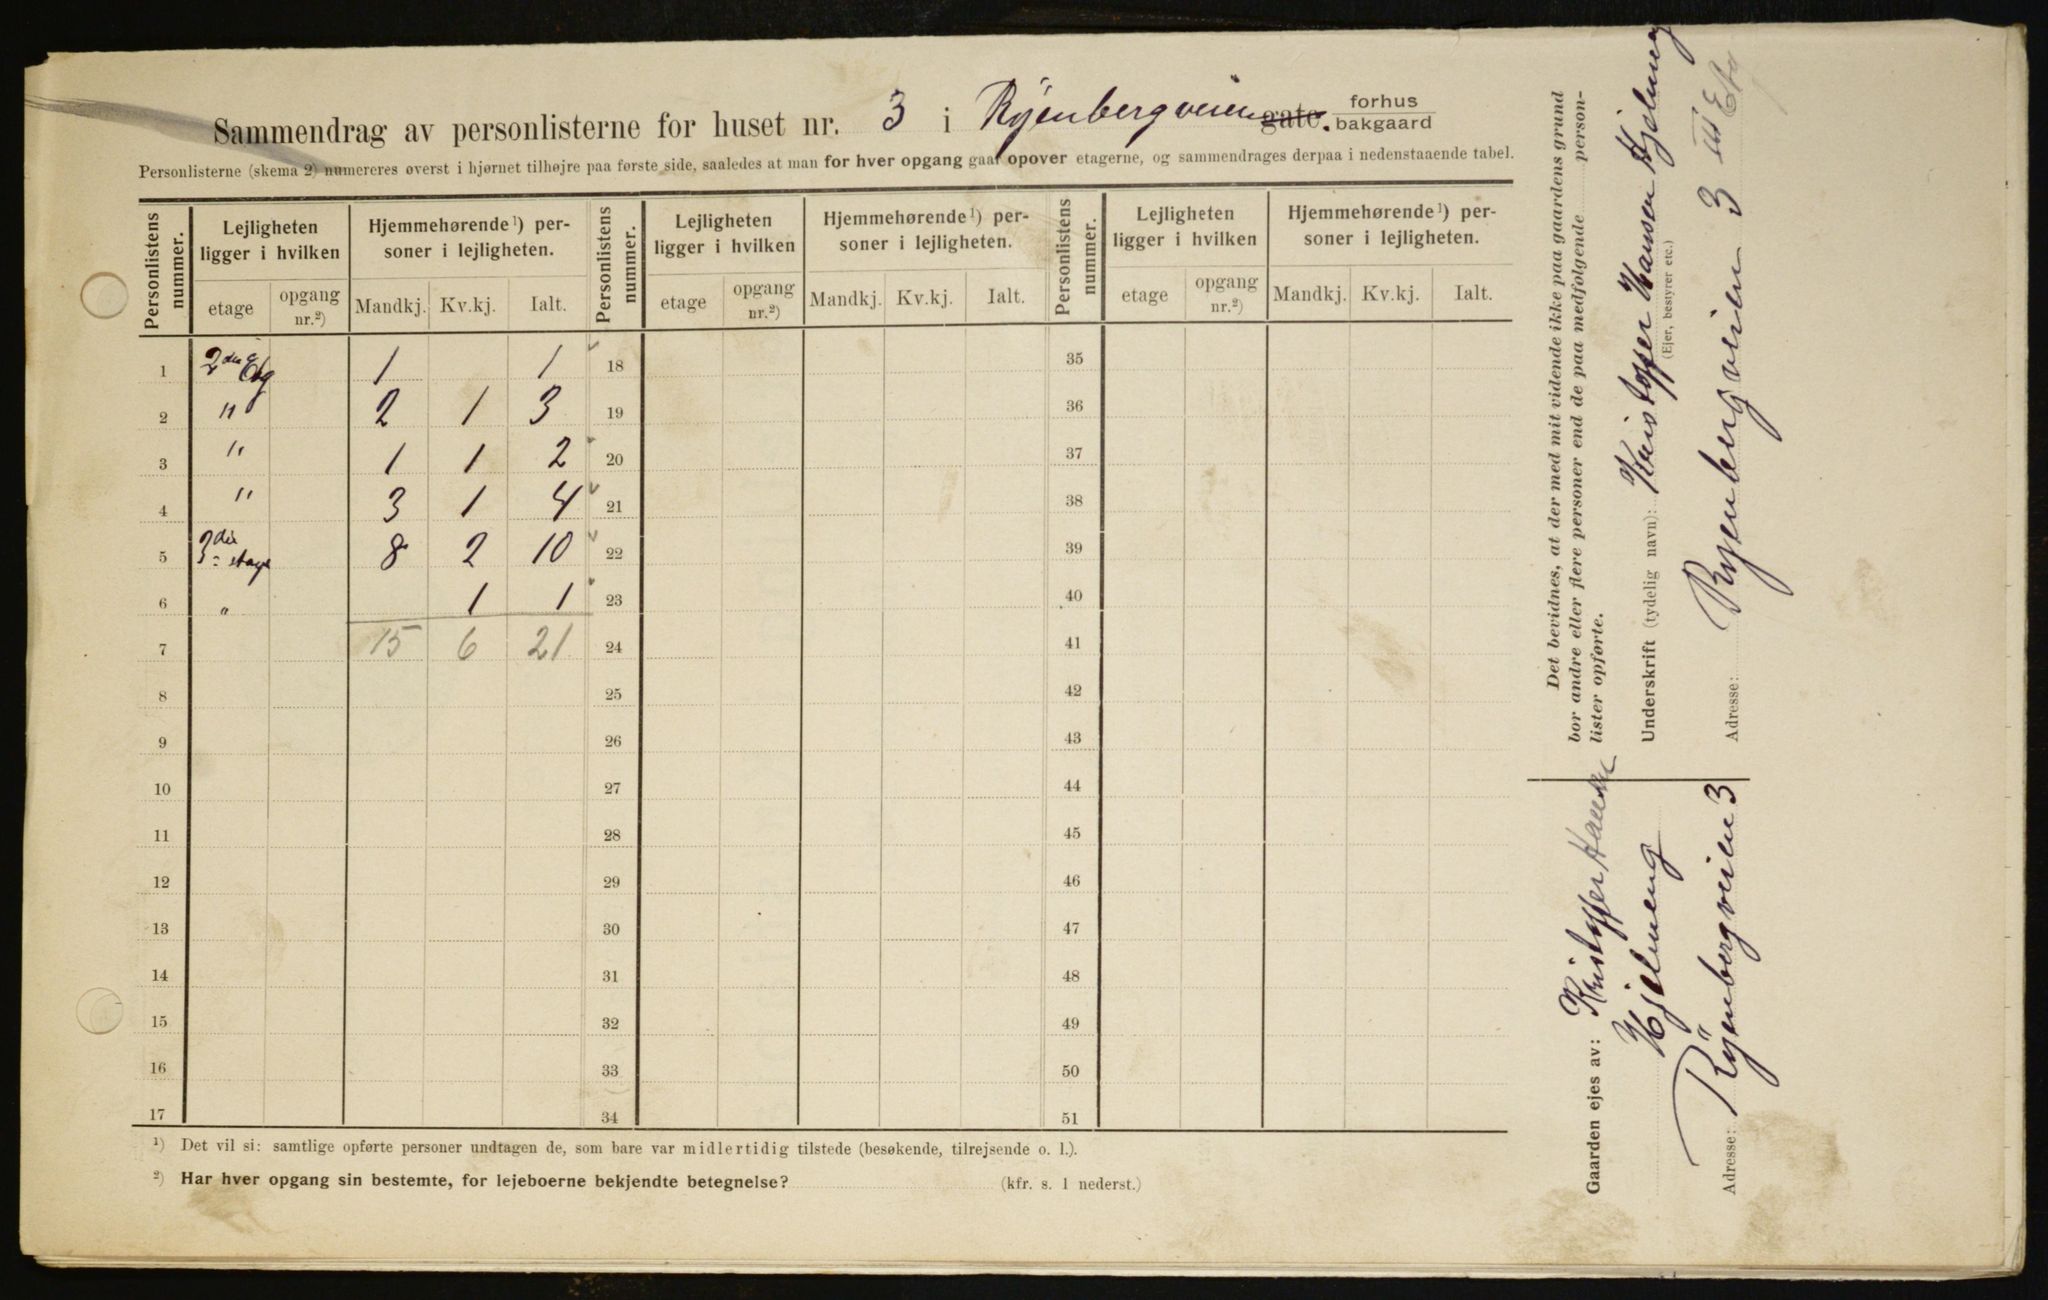 Sammendrag av personlisterne for huset nr. 3 i Ryenbergveien gate. forhus bakgaard
Personlisterne (skema 2) numereres øverst i hjørnet tilhøjre paa første side, saaledes at man for hver opgang gaar opover etagerne, og sammendrages derpaa i nedenstaaende tabel.
Personlistens nummer. Lejligheten ligger i hvilken Hjemmehørende¹) personer i lejligheten. Personlistens nummer. Lejligheten ligger i hvilken Hjemmehørende¹) personer i lejligheten. Personlistens nummer. Lejligheten ligger i hvilken Hjemmehørende¹) personer i lejligheten.
etage opgang nr.²) Mandkj. Kv.kj. Ialt. etage opgang nr.²) Mandkj. Kv.kj. Ialt. etage opgang nr.²) Mandkj. Kv.kj. Ialt.
1 2den Etg 1 1 18 35
2 " 2 1 3 19 36
3 " 1 1 2 20 37
4 " 3 1 4 21 38
5 3die etage 8 2 10 22 39
6 " 1 1 23 40
7 15 6 21 24 41
8 25 42
9 26 43
10 27 44
11 28 45
12 29 46
13 30 47
14 31 48
15 32 49
16 33 50
17 34 51
¹) Det vil si: samtlige opførte personer undtagen de, som bare var midlertidig tilstede (besøkende, tilrejsende o. l.).
²) Har hver opgang sin bestemte, for lejeboerne bekjendte betegnelse? (kfr. s. 1 nederst.)
Det bevidnes, at der med mit vidende ikke paa gaardens grund
bor andre eller flere personer end de paa medfølgende person-
lister opførte.
Underskrift (tydelig navn): Kristoffer Hansen Hjelmeng
(Ejer, bestyrer etc.)
Adresse: Ryenbergveien 3 III Etg
Gaarden ejes av: Kristoffer Hansen
Hjelmeng
Adresse: Ryenbergveien 3